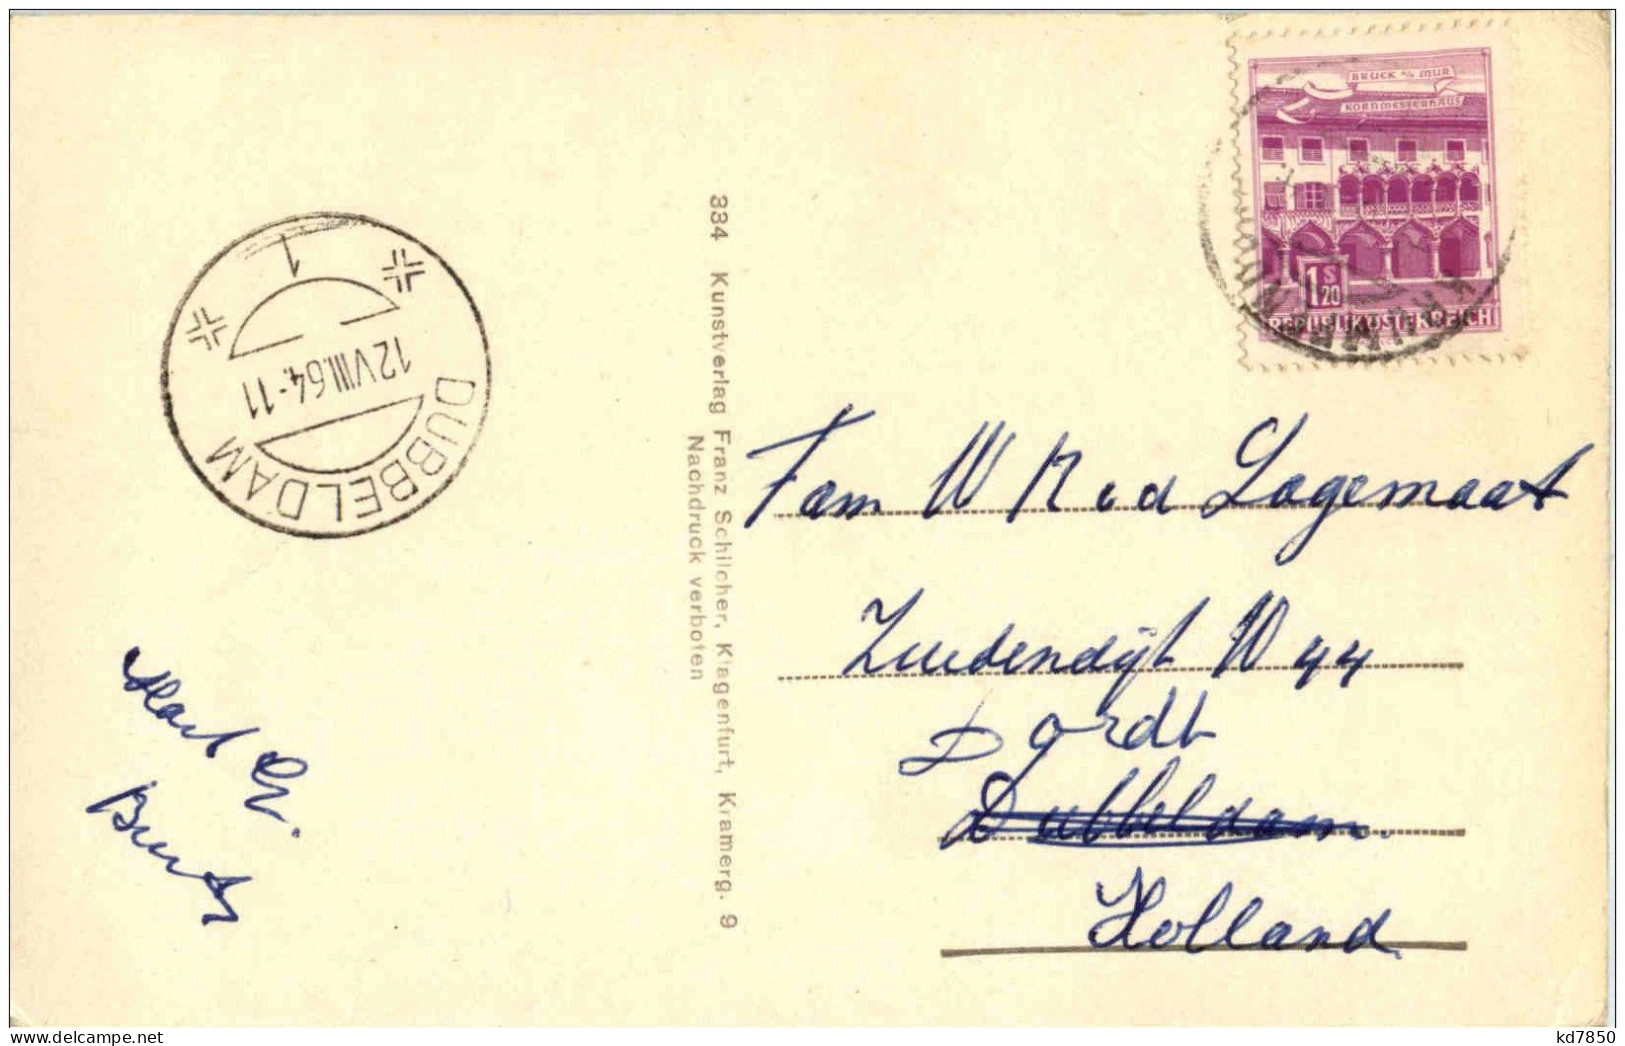 BRUCK a/d MUR
KORNMESSERHAUS
1 S 20
REPUBLIK ÖSTERREICH
KRUMPENDORF
DUBBELDAM
12 VIII.64.-11
1
334 Kunstverlag Franz Schilcher, Klagenfurt, Kramerg. 9
Nachdruck verboten
Fam W Lagemaat
Zuidendijk 44
Dordt
Dubbeldam.
Holland
Hart Gr.
eBay: kd7850
kd7850